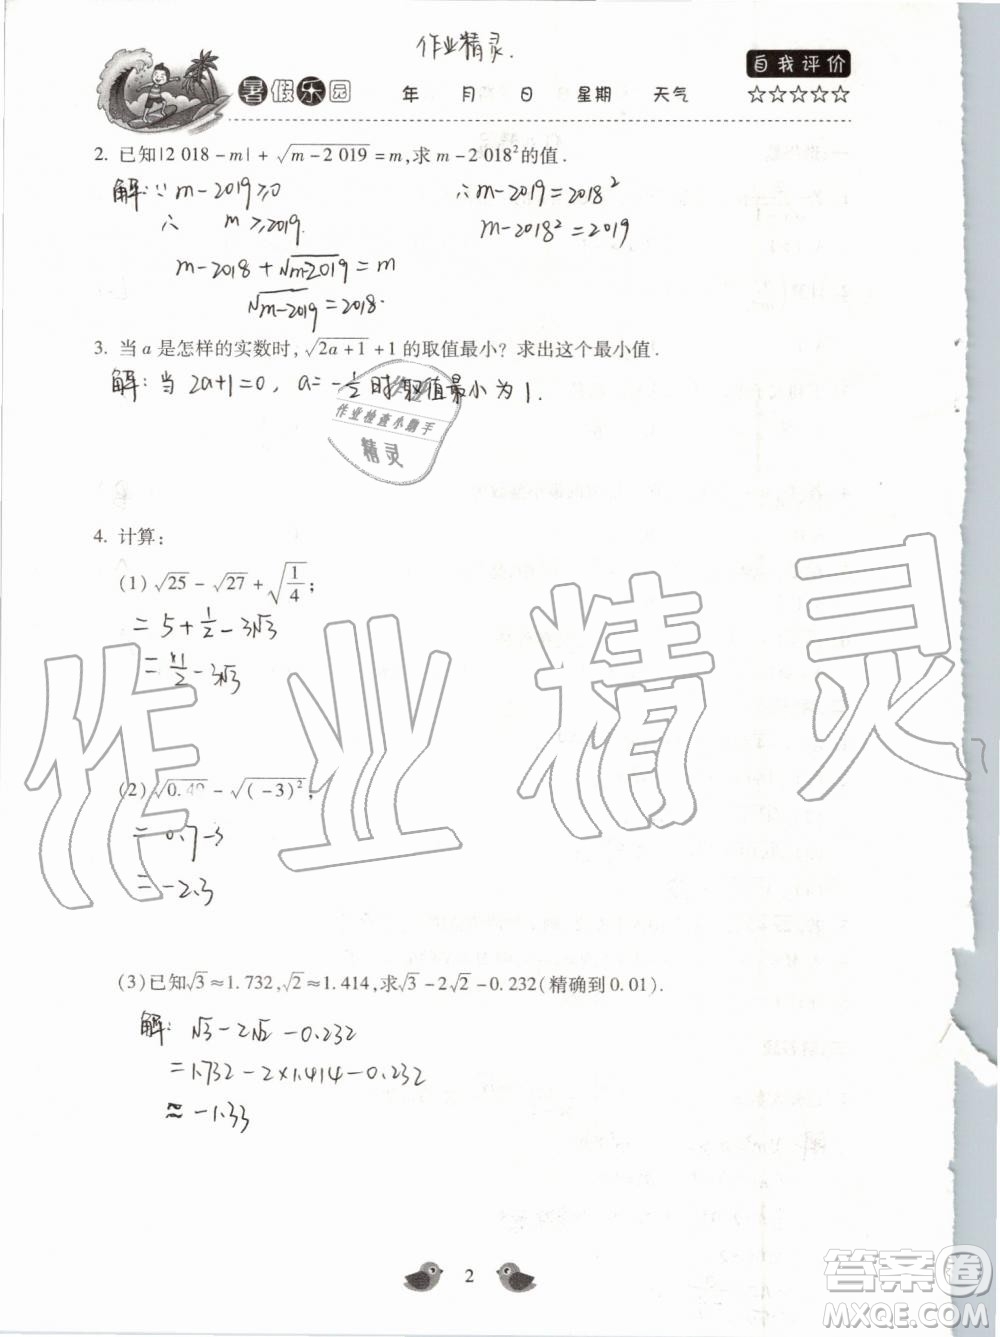 作业精灵.
自我评价
暑假乐园 年 月 日 星期 天气 ☆☆☆☆☆
2. 已知|2 018－m|＋√(m－2 019)＝m,求 m－2 018²的值.
解:∵m－2019≥0 ∴m－2019＝2018²
∴ m≥2019. m－2018²＝2019
m－2018＋√(m－2019)＝m
√(m－2019)＝2018.
3. 当 a 是怎样的实数时,√(2a＋1)＋1 的取值最小？求出这个最小值.
解:当 2a+1=0, a=－1/2时取值最小为1.
作业
作业检查小助手
精灵
4. 计算:
(1) √25－√27＋√(1/4);
＝5＋1/2－3√3
＝11/2－3√3
作业精灵
(2) √0.49－√((－3)²);
＝0.7－3
＝－2.3
(3)已知√3≈1.732,√2≈1.414,求√3－2√2－0.232(精确到0.01).
解: √3－2√2－0.232
＝1.732－2×1.414－0.232
≈－1.33
2
答案圈
MXQE.COM